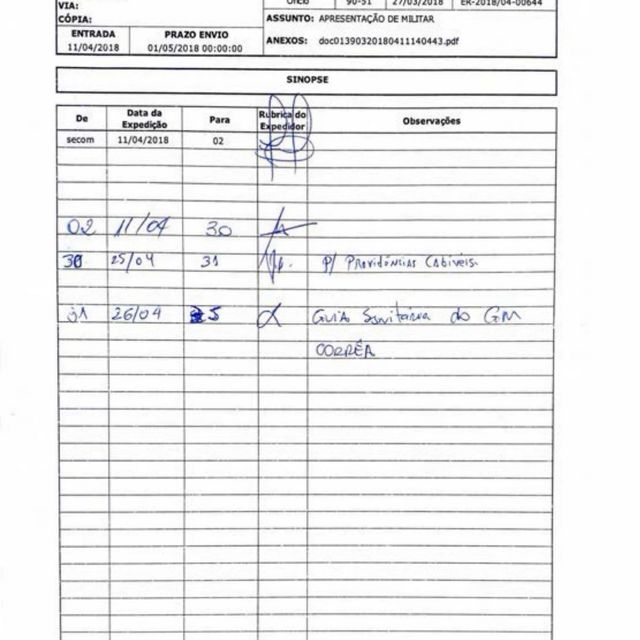 VIA:
Ofício 90-51 27/03/2018 ER-2018/04-00644
CÓPIA:
ASSUNTO: APRESENTAÇÃO DE MILITAR
ENTRADA PRAZO ENVIO
ANEXOS: doc01390320180411140443.pdf
11/04/2018 01/05/2018 00:00:00
SINOPSE
De Data da Expedição Para Rubrica do Expedidor Observações
secom 11/04/2018 02
02 11/04 30
30 25/04 31 P/ Providências Cabíveis.
31 26/04 5 Guia Sanitária do GM
CORRÊA